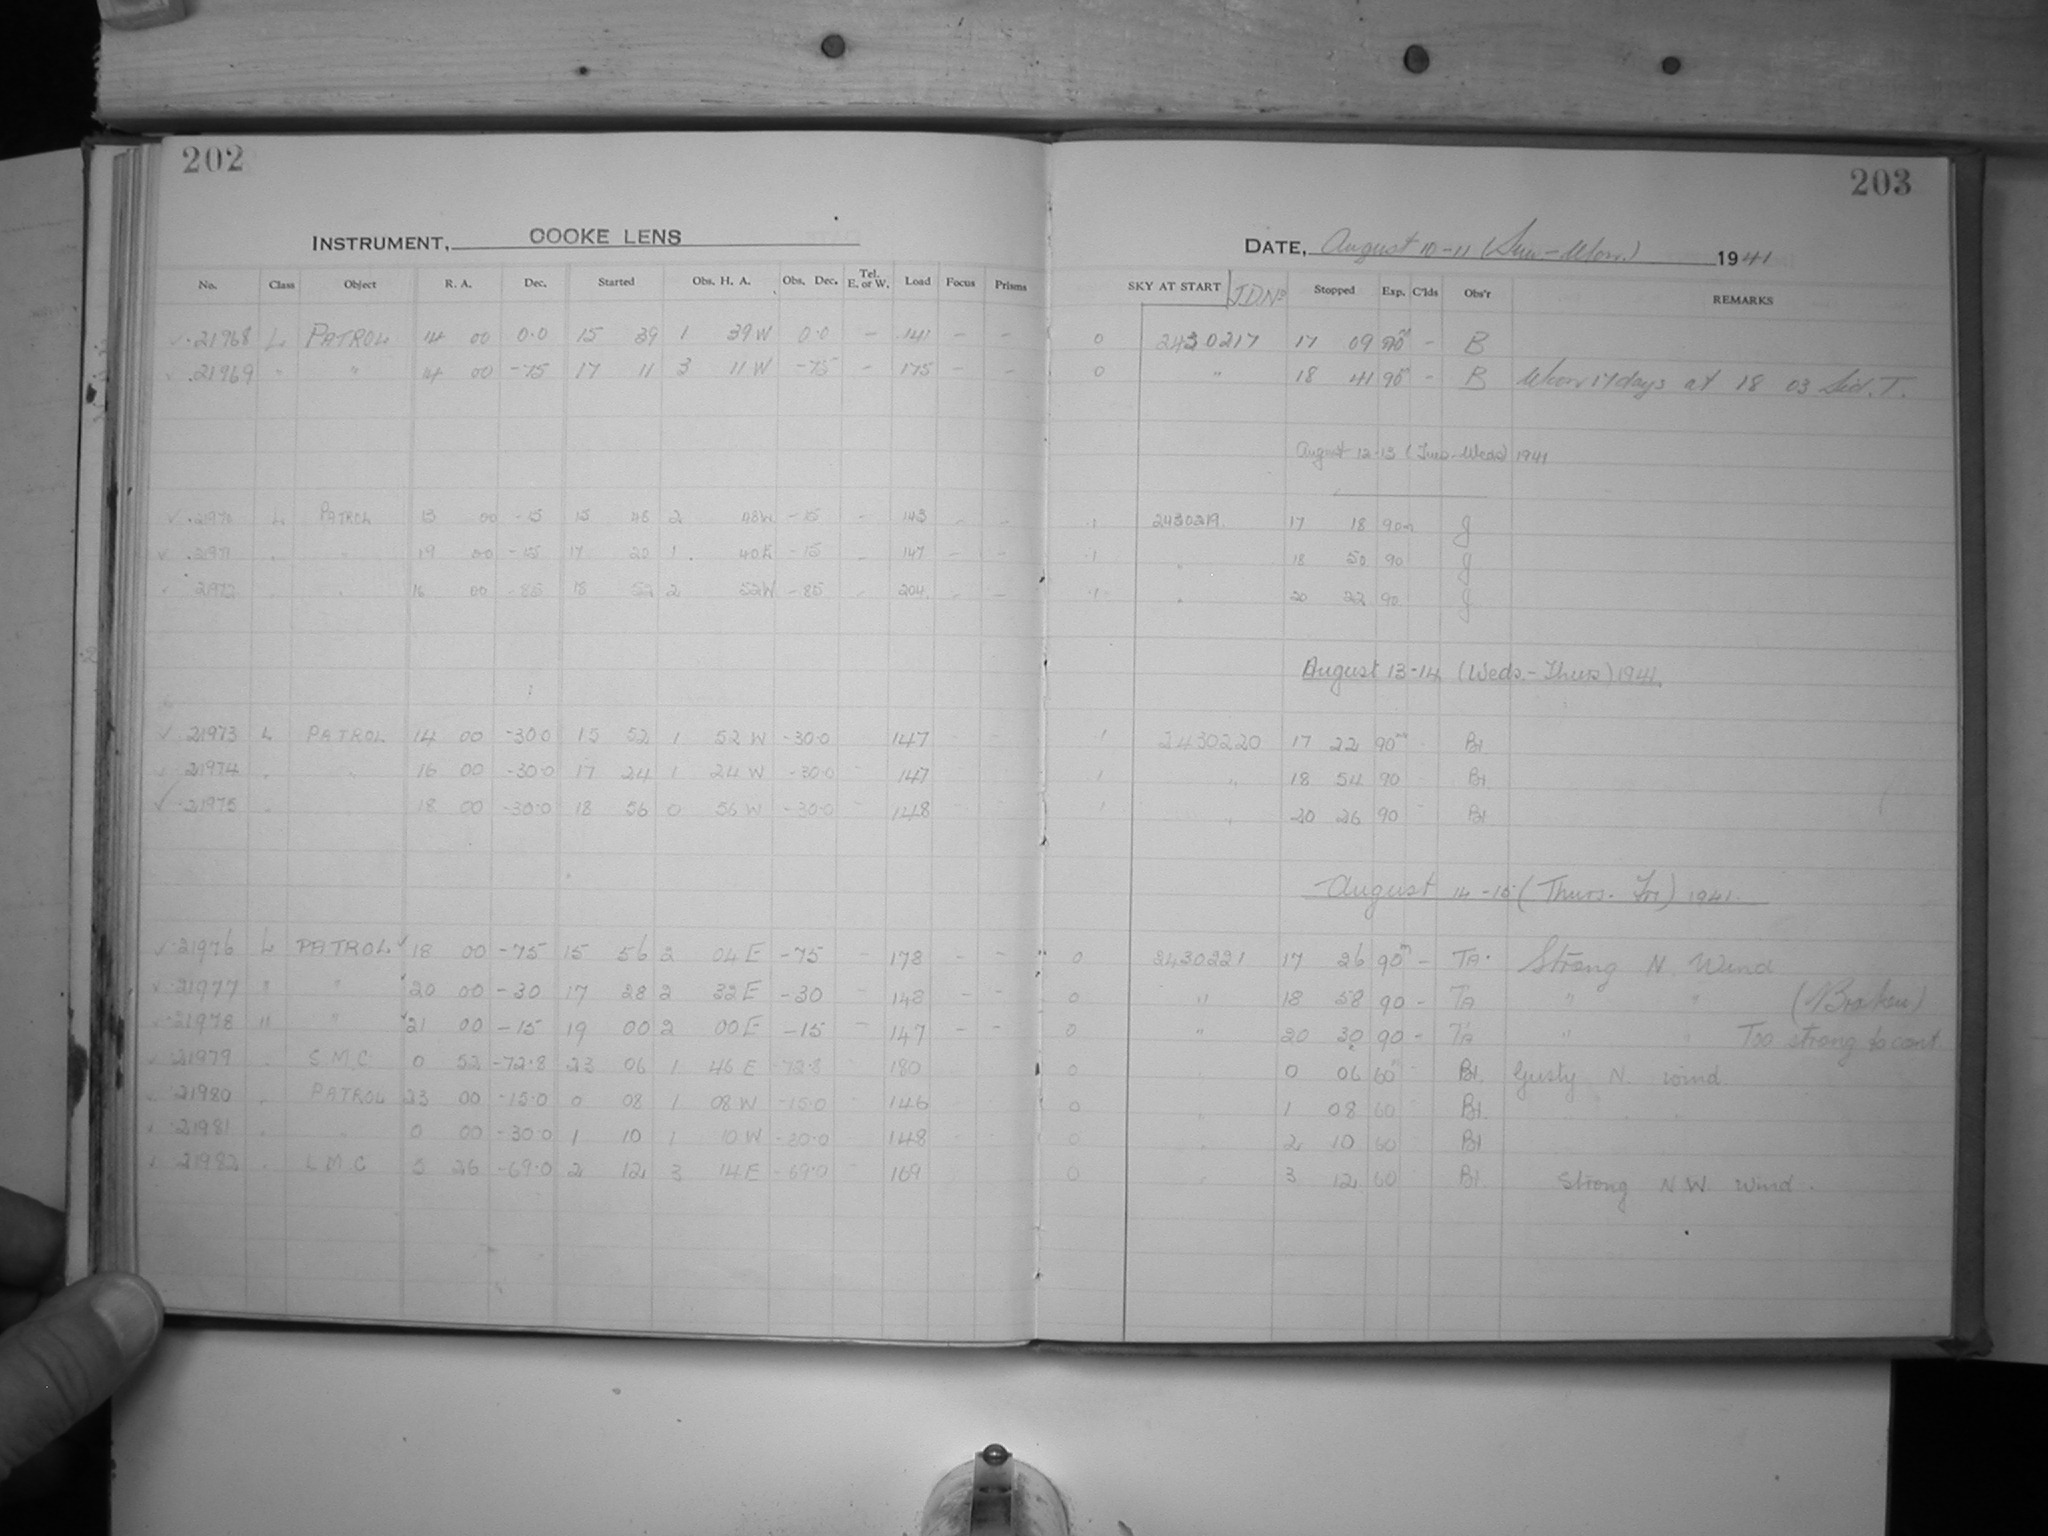 202
203
INSTRUMENT, COOKE LENS
DATE, August 10-11 (Sun-Mon.) 1941
No. Class Object R. A. Dec. Started Obs. H. A. Obs. Dec. Tel. E. or W. Load Focus Prisms SKY AT START JDNo Stopped Exp. C'lds Obs'r REMARKS
21968 L PATROL 14 00 0.0 15 39 1 39W 0.0 – 141 – – 0 2430217 17 09 90m – B
21969 " " 14 00 -75 17 11 3 11W -75 – 175 – – 0 " 18 41 90m – B Moon 17 days at 18 03 Sid. T.
August 12-13 (Tues-Weds) 1941
21970 L PATROL 13 00 -15 15 48 2 48W -15 – 143 – – 1 2430219 17 18 90m J
21971 " " 19 00 -15 17 20 1 40E -15 – 147 – – 1 " 18 50 90 J
21972 " " 16 00 -85 18 52 2 52W -85 – 204 – – 1 " 20 22 90 J
August 13-14 (Weds.-Thurs) 1941.
21973 L PATROL 14 00 -30.0 15 52 1 52W -30.0 147 1 2430220 17 22 90m Bl.
21974 " " 16 00 -30.0 17 24 1 24W -30.0 147 1 " 18 54 90 Bl.
21975 " 18 00 -30.0 18 56 0 56W -30.0 148 1 " 20 26 90 Bl.
August 14-15 (Thurs. Fri) 1941.
21976 L PATROL 18 00 -75 15 56 2 04E -75 – 178 – – 0 2430221 17 26 90m – TA. Strong N. Wind
21977 " " 20 00 -30 17 28 2 32E -30 – 148 – – 0 " 18 58 90 – TA " " (Broken)
21978 " " 21 00 -15 19 00 2 00E -15 – 147 – – 0 " 20 30 90 – TA " " Too strong to cont
21979 " S M C 0 52 -72.8 23 06 1 46E -72.8 180 0 " 0 06 60m Bl. Gusty N. wind
21980 " PATROL 23 00 -15.0 0 08 1 08W -15.0 146 0 " 1 08 60 Bl. " " "
21981 " " 0 00 -30.0 1 10 1 10W -30.0 148 0 " 2 10 60 Bl
21982 " L M C 5 26 -69.0 2 12 3 14E -69.0 169 0 " 3 12 60 Bl. Strong N.W. wind.